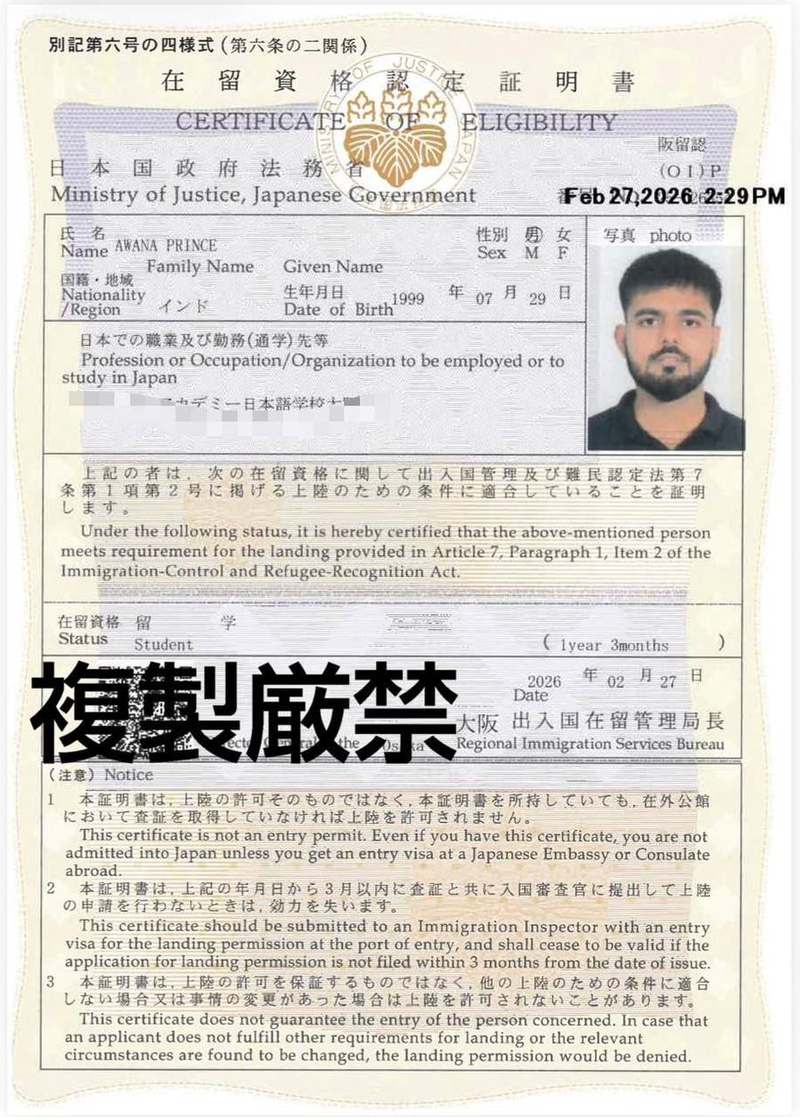 別記第六号の四様式(第六条の二関係)
在留資格認定証明書
CERTIFICATE OF ELIGIBILITY
MINISTRY OF JUSTICE
JAPAN
阪留認
日本国政府法務省
(01)P
Ministry of Justice, Japanese Government
Feb 27,2026 2:29 PM
氏名
Name AWANA PRINCE
Family Name Given Name
性別 男 女
Sex M F
写真 photo
国籍・地域
Nationality
/Region インド
生年月日
Date of Birth 1999 年 07 月 29 日
日本での職業及び勤務(通学)先等
Profession or Occupation/Organization to be employed or to
study in Japan
カデミー日本語学校大
上記の者は、次の在留資格に関して出入国管理及び難民認定法第7
条第1項第2号に掲げる上陸のための条件に適合していることを証明
します。
Under the following status, it is hereby certified that the above-mentioned person
meets requirement for the landing provided in Article 7, Paragraph 1, Item 2 of the
Immigration-Control and Refugee-Recognition Act.
在留資格 留 学
Status Student
( 1year 3months )
2026 年 02 月 27 日
Date
複製厳禁
大阪 出入国在留管理局長
General the Osaka Regional Immigration Services Bureau
(注意) Notice
1 本証明書は、上陸の許可そのものではなく、本証明書を所持していても、在外公館
において査証を取得していなければ上陸を許可されません。
This certificate is not an entry permit. Even if you have this certificate, you are not
admitted into Japan unless you get an entry visa at a Japanese Embassy or Consulate
abroad.
2 本証明書は、上記の年月日から3月以内に査証と共に入国審査官に提出して上陸
の申請を行わないときは、効力を失います。
This certificate should be submitted to an Immigration Inspector with an entry
visa for the landing permission at the port of entry, and shall cease to be valid if the
application for landing permission is not filed within 3 months from the date of issue.
3 本証明書は、上陸の許可を保証するものではなく、他の上陸のための条件に適合
しない場合又は事情の変更があった場合は上陸を許可されないことがあります。
This certificate does not guarantee the entry of the person concerned. In case that
an applicant does not fulfill other requirements for landing or the relevant
circumstances are found to be changed, the landing permission would be denied.